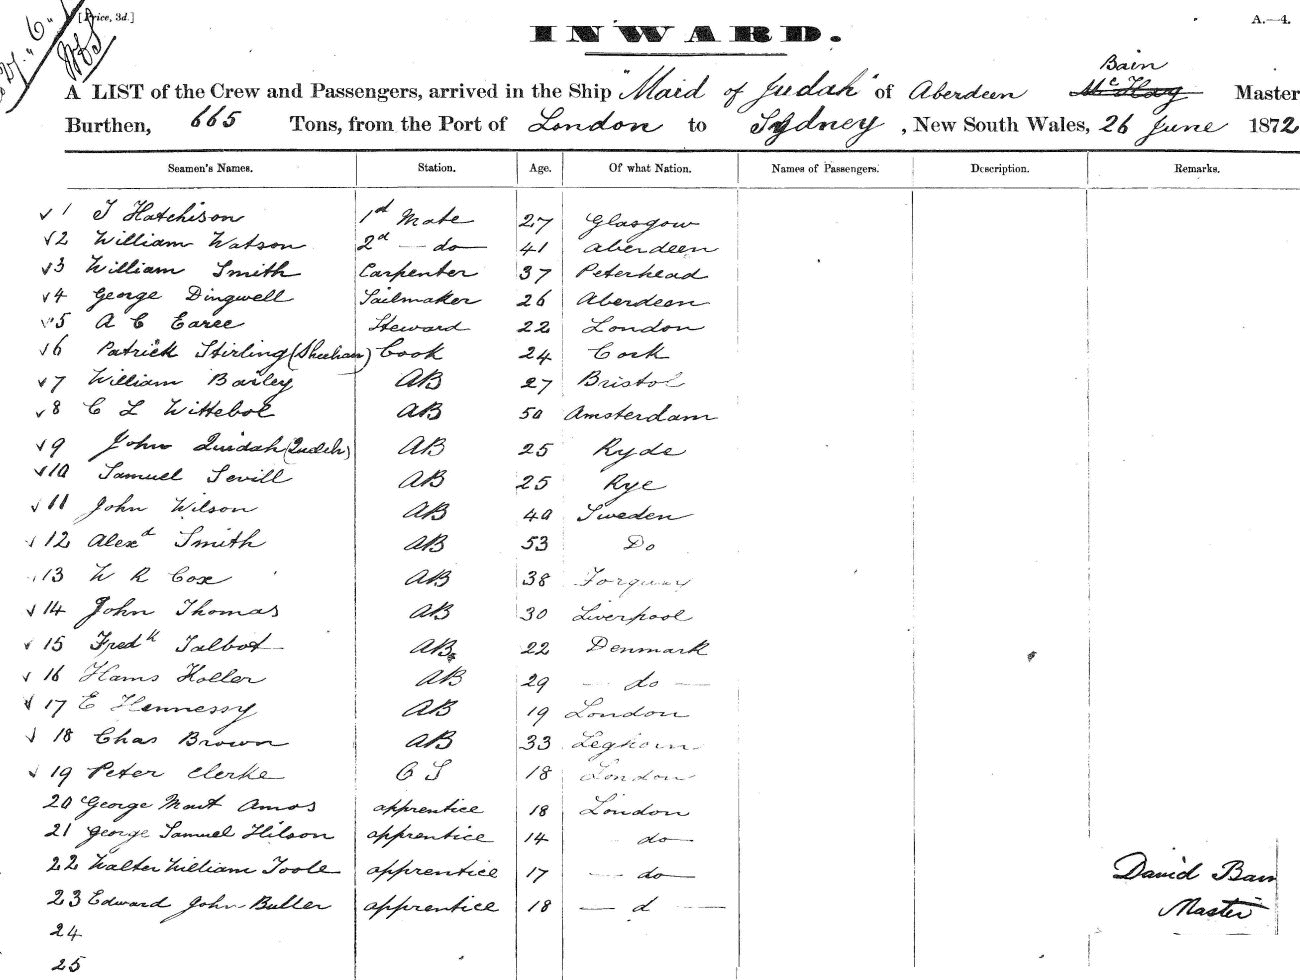 [Price, 3d.]
A.—4.
INWARD.
Bain
A LIST of the Crew and Passengers, arrived in the Ship "Maid of Judah" of Aberdeen Mc Hay Master
Burthen, 665 Tons, from the Port of London to Sydney, New South Wales, 26 June 1872
Seamen's Names. Station. Age. Of what Nation. Names of Passengers. Description. Remarks.
1 J Hatchison 1d Mate 27 Glasgow
2 William Watson 2d — do — 41 Aberdeen
3 William Smith Carpenter 37 Peterhead
4 George Dingwell Sailmaker 26 Aberdeen
5 A C Earee Steward 22 London
6 Patrick Stirling (Sheehan) Cook 24 Cork
7 William Barley AB 27 Bristol
8 C L Wittebol AB 50 Amsterdam
9 John AB 25 Ryde
10 Samuel Sevill AB 25 Rye
11 John Wilson AB 40 Sweden
12 Alexd Smith AB 53 Do
13 W R Cox AB 38 Torquay
14 John Thomas AB 30 Liverpool
15 Fredk Talbot AB 22 Denmark
16 Hams Holler AB 29 — do —
17 E Hennessy AB 19 London
18 Chas Brown AB 33 Leghorn
19 Peter Clerke O S 18 London
20 George Mout Amos apprentice 18 London
21 George Samuel Hilson apprentice 14 do —
22 Walter William Toole apprentice 17 — do —
23 Edward John Butler apprentice 18 — d —
24
25
David Bain
Master